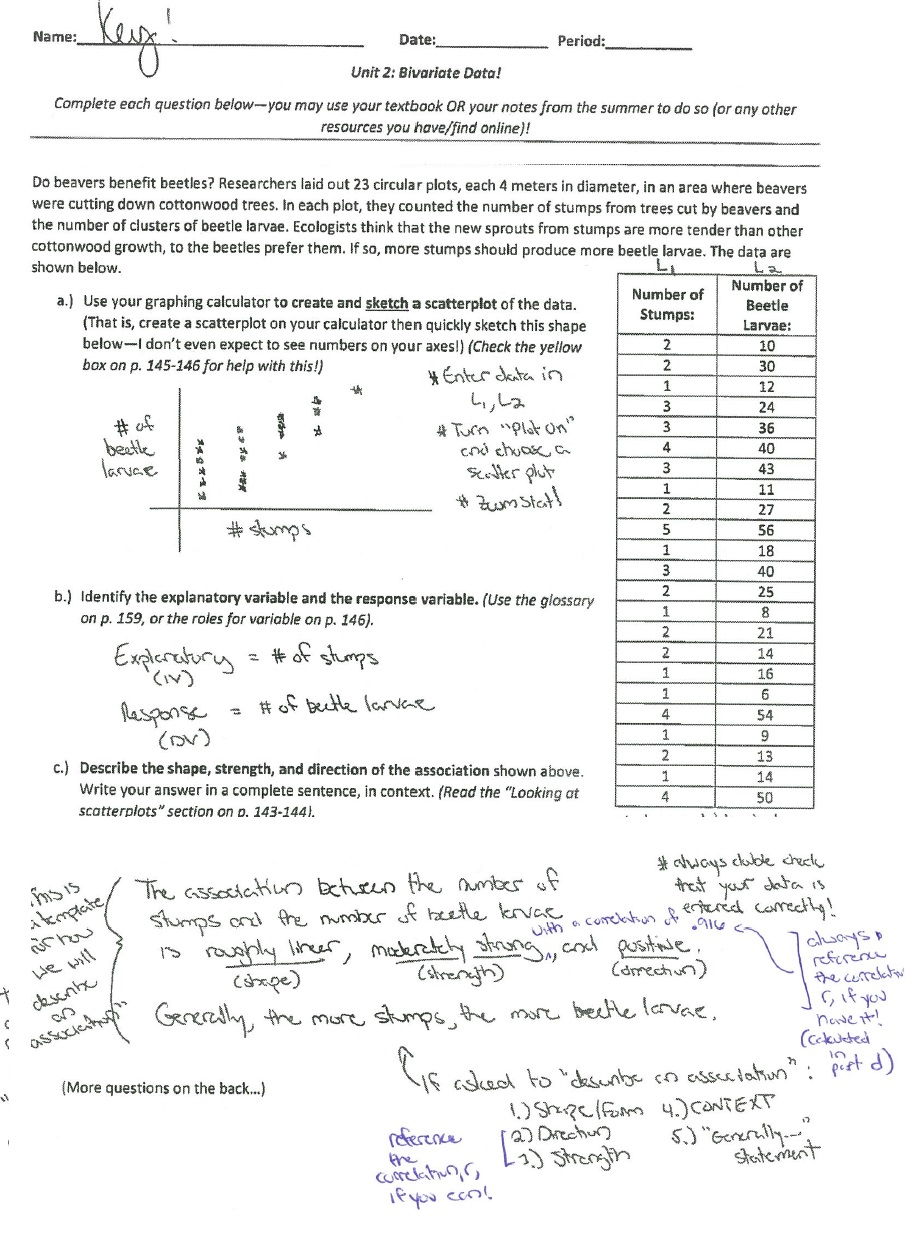 Name: Key!
Date: Period:
Unit 2: Bivariate Data!
Complete each question below—you may use your textbook OR your notes from the summer to do so (or any other
resources you have/find online)!
Do beavers benefit beetles? Researchers laid out 23 circular plots, each 4 meters in diameter, in an area where beavers
were cutting down cottonwood trees. In each plot, they counted the number of stumps from trees cut by beavers and
the number of clusters of beetle larvae. Ecologists think that the new sprouts from stumps are more tender than other
cottonwood growth, to the beetles prefer them. If so, more stumps should produce more beetle larvae. The data are
shown below.
L1 L2
Number of Stumps: Number of Beetle Larvae:
2 10
2 30
1 12
3 24
3 36
4 40
3 43
1 11
2 27
5 56
1 18
3 40
2 25
1 8
2 21
2 14
1 16
1 6
4 54
1 9
2 13
1 14
4 50
a.) Use your graphing calculator to create and sketch a scatterplot of the data.
(That is, create a scatterplot on your calculator then quickly sketch this shape
below—I don't even expect to see numbers on your axes!) (Check the yellow
box on p. 145-146 for help with this!)
# of
beetle
larvae
# stumps
* Enter data in
L1, L2
* Turn "Plot On"
and choose a
scatter plot
* ZoomStat!
b.) Identify the explanatory variable and the response variable. (Use the glossary
on p. 159, or the roles for variable on p. 146).
Explanatory = # of stumps
(IV)
Response = # of beetle larvae
(DV)
c.) Describe the shape, strength, and direction of the association shown above.
Write your answer in a complete sentence, in context. (Read the "Looking at
scatterplots" section on p. 143-144).
* always double check
that your data is
entered correctly!
This is
a template
for how
we will
describe
an
association"
The association between the number of
stumps and the number of beetle larvae
is roughly linear, moderately strong, with a correlation of .916 and positive.
(shape) (strength) (direction)
Generally, the more stumps, the more beetle larvae.
always
reference
the correlation
r, if you
have it!
(calculated
in
part d)
If asked to "describe an association":
1.) Shape/Form 4.) CONTEXT
2.) Direction 5.) "Generally..."
3.) Strength statement
reference
the
correlation, r,
if you can!
(More questions on the back...)